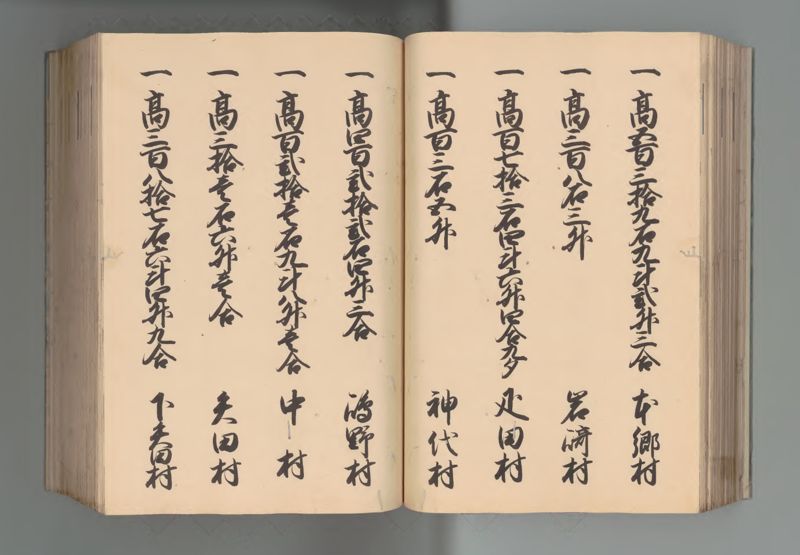 一 高五百三拾九石九斗弐升三合 本郷村
一 高三百八石三升 岩崎村
一 高百七拾三石四斗六升四合九夕 疋田村
一 高百三石五升 神代村
一 高四百弐拾弐石四升三合 鴻野村
一 高百弐拾壱石九斗八升壱合 中村
一 高三拾壱石六升壱合 矢田村
一 高三百八拾七石六斗四升九合 下矢田村